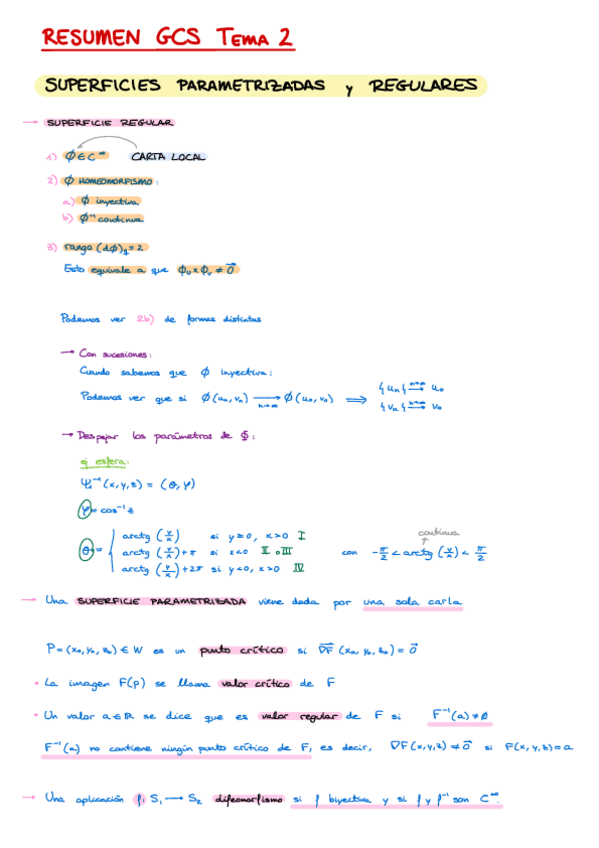 RESUMEN GCS TEMA 2
SUPERFICIES PARAMETRIZADAS y REGULARES
→ SUPERFICIE REGULAR
1) ϕ ∈ C^∞ CARTA LOCAL
2) ϕ HOMEOMORFISMO:
a) ϕ inyectiva
b) ϕ⁻¹ continua
3) rango (dϕ)_q = 2
Esto equivale a que ϕ_u × ϕ_v ≠ 0⃗
Podemos ver 2b) de formas distintas
→ Con sucesiones:
Cuando sabemos que ϕ inyectiva:
Podemos ver que si ϕ(u_n, v_n) ⟶ ϕ(u₀, v₀) ⟹ {u_n} ⟶ u₀
n→∞ {v_n} ⟶ v₀
→ Despejar los parámetros de Φ:
ej esfera:
Ψ⁻¹(x, y, z) = (θ, φ)
φ = cos⁻¹ z
θ = { arctg (y/x) si y ≥ 0, x > 0 I
arctg (y/x) + π si x < 0 II o III
arctg (y/x) + 2π si y < 0, x > 0 IV
continua
con -π/2 < arctg (y/x) < π/2
→ Una SUPERFICIE PARAMETRIZADA viene dada por una sola carta
P = (x₀, y₀, z₀) ∈ W es un punto crítico si ∇F (x₀, y₀, z₀) = 0⃗
• La imagen F(p) se llama valor crítico de F
• Un valor a ∈ ℝ se dice que es valor regular de F si F⁻¹(a) ≠ ∅
F⁻¹(a) no contiene ningún punto crítico de F, es decir, ∇F(x, y, z) ≠ 0⃗ si F(x, y, z) = a
→ Una aplicación f: S₁ ⟶ S₂ difeomorfismo si f biyectiva y si f y f⁻¹ son C^∞.